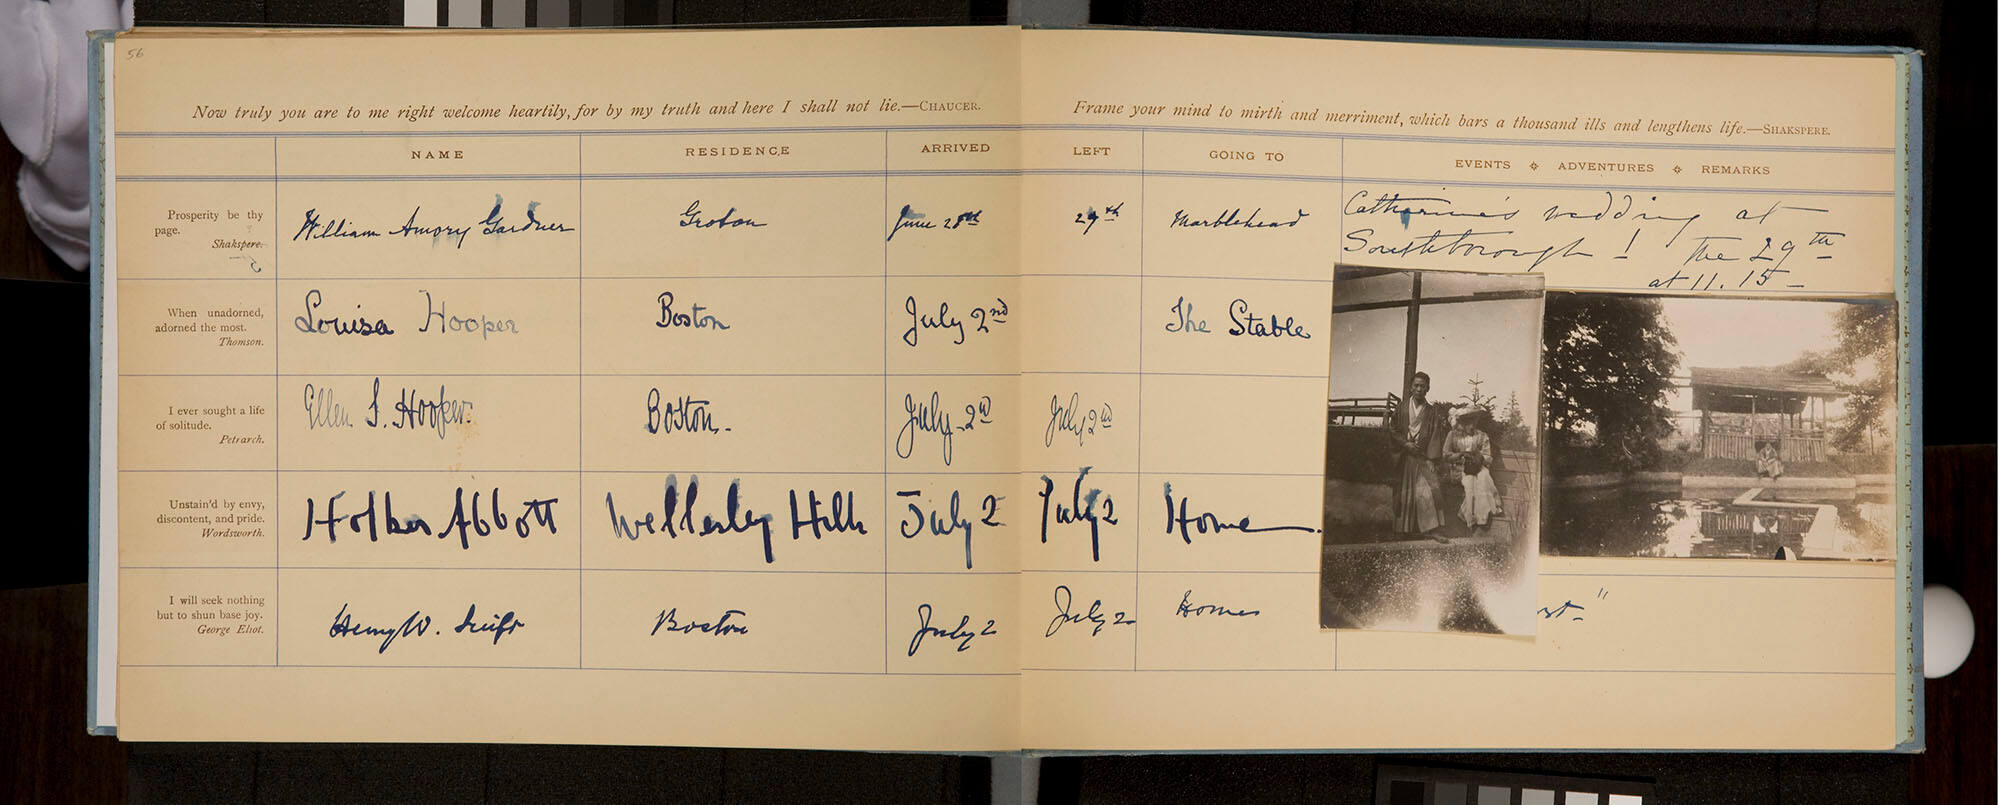 56
Now truly you are to me right welcome heartily, for by my truth and here I shall not lie.—CHAUCER.
Frame your mind to mirth and merriment, which bars a thousand ills and lengthens life.—SHAKSPERE.
NAME RESIDENCE ARRIVED LEFT GOING TO EVENTS ADVENTURES REMARKS
Prosperity be thy
page.
Shakspere.
William Amory Gardner Groton June 28th 29th Marblehead
Catherine's wedding at
Southborough! The 29th
at 11.15
When unadorned,
adorned the most.
Thomson.
Louisa Hooper Boston July 2nd The Stable
I ever sought a life
of solitude.
Petrarch.
Ellen S. Hooper. Boston. July 2d July 2d
Unstain'd by envy,
discontent, and pride.
Wordsworth.
Holker Abbott Wellesley Hills July 2 July 2 Home
I will seek nothing
but to shun base joy.
George Eliot.
Henry W. Swift Boston July 2 July 2 Home